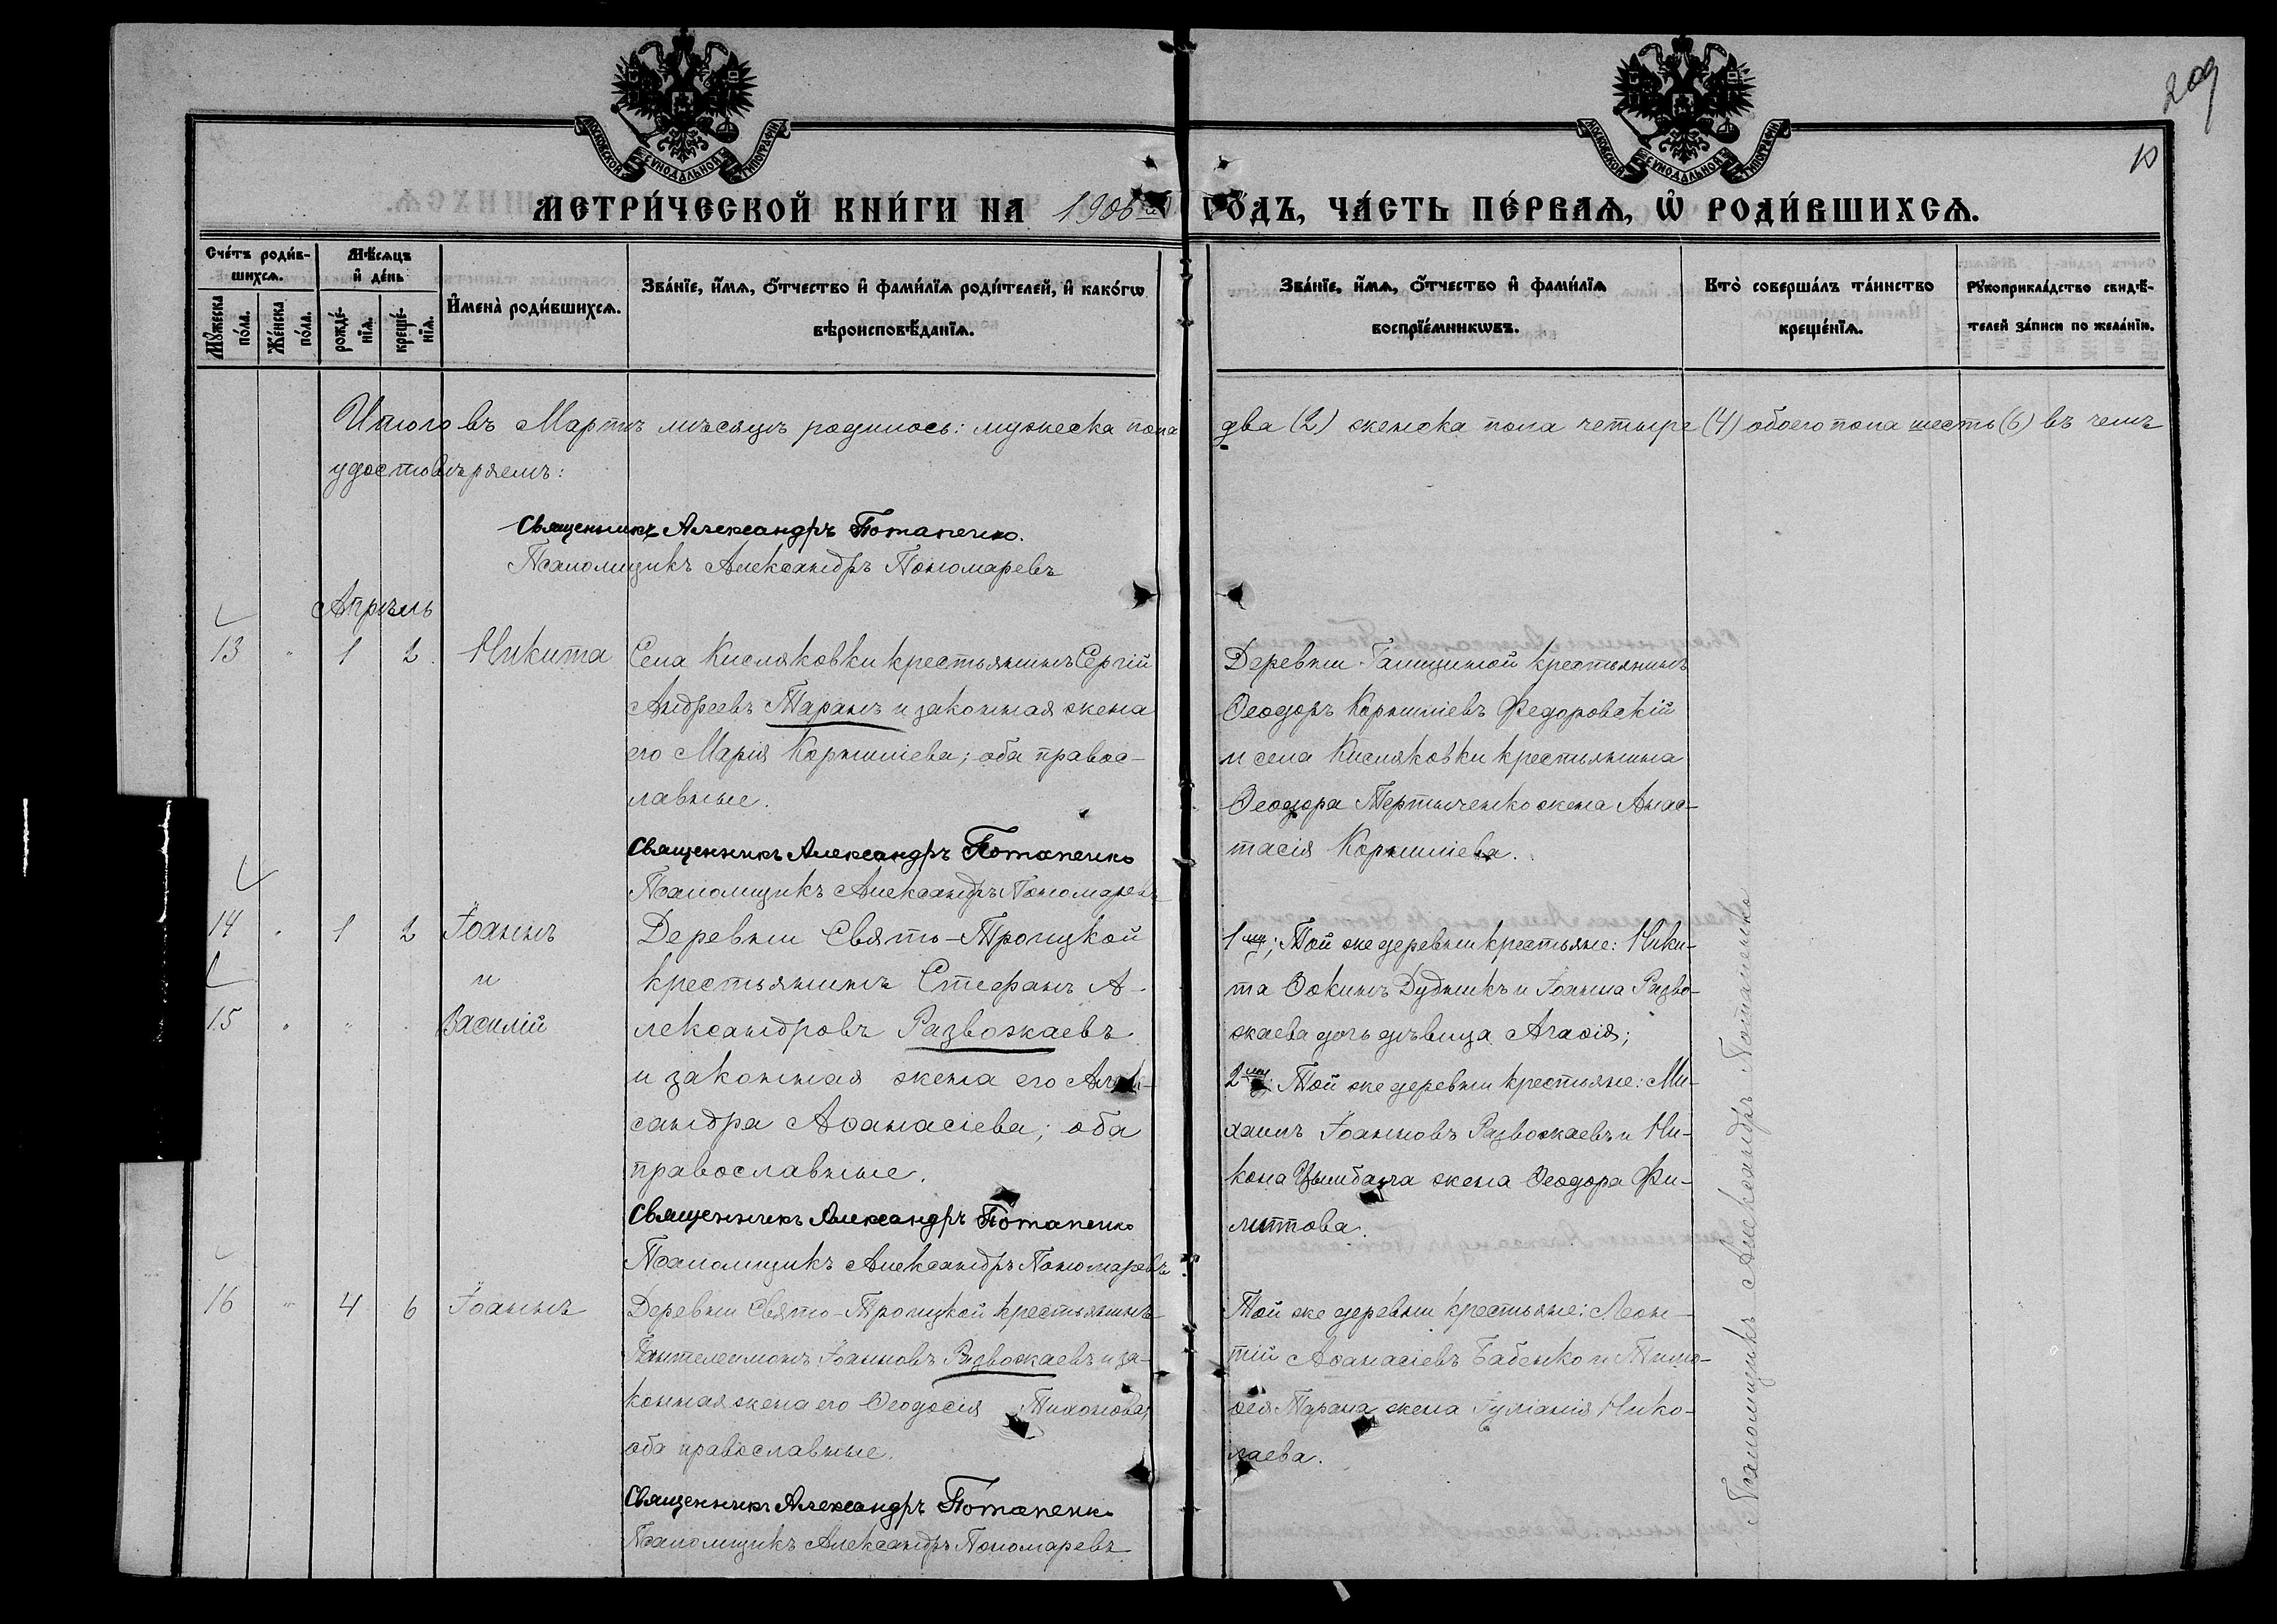 209
10
МОСКОВСКОЙ СѴНОДАЛЬНОЙ ТИПОГРАФІИ
МОСКОВСКОЙ СѴНОДАЛЬНОЙ ТИПОГРАФІИ
МЕТРИ́ЧЕСКОЙ КНИ́ГИ НА 1906 й ГО́ДЪ, ЧА́СТЬ ПЕ́РВАѦ, Ѡ҆ РОДИ́ВШИХСѦ.
Сче́тъ роди́в-
шихсѧ.
Мꙋ́жеска по́ла.
Же́нска по́ла.
Мѣ́сѧцъ
и҆ де́нь
рожде́-
нїѧ.
креще́-
нїѧ.
И҆мена̀ роди́вшихсѧ.
Зва́нїе, и҆́мѧ, ѻ҆́тчество и҆ фами́лїѧ роди́телей, и҆ како́гѡ
вѣроисповѣ́данїѧ.
Зва́нїе, и҆́мѧ, ѻ҆́тчество и҆ фами́лїѧ
воспрїе́мникѡвъ.
Кто̀ соверша́лъ та́инство
креще́нїѧ.
Рꙋкоприкла́дство свидѣ́-
телей за́писи по жела́нїю.
Итого въ Мартѣ мѣсяцѣ родилось: мужеска пола два (2) женска пола четыре (4) обоего пола шесть (6) въ чемъ
удостовѣряемъ:
Священникъ Александръ Потапенко.
Псаломщикъ Александръ Пономаревъ
Апрѣль
13 " 1 2 Никита
Села Кисляковки крестьянинъ Сергій
Андреевъ Таранъ и законная жена
его Марія Корниліева; оба правос-
лавные.
Священникъ Александръ Потапенко
Псаломщикъ Александръ Пономаревъ
Деревни Галициной крестьянинъ
Ѳеодоръ Корниліевъ Федоровскій
и села Кисляковки крестьянина
Ѳеодора Тертыченко жена Анас-
тасія Корниліева.
14 " 1 2 Іоаннъ
и
15 " " " Василій
Деревни Свято-Троицкой
крестьянинъ Стефанъ А-
лександровъ Развожаевъ
и законная жена его Алек-
сандра Аѳанасіева; оба
православные.
Священникъ Александръ Потапенко
Псаломщикъ Александръ Пономаревъ
1 му; Той же деревни крестьяне: Ники-
та Ѳокинъ Дудникъ и Іоанна Разво-
жаева дочь дѣвица Агаѳія;
2 му: Той же деревни крестьяне: Ми-
хаилъ Іоанновъ Развожаевъ и Ни-
кона Цымбала жена Ѳеодора Фи-
липпова.
16 " 4 6 Іоаннъ
Деревни Свято-Троицкой крестьянинъ
Пантелеимонъ Іоанновъ Развожаевъ и за-
конная жена его Ѳеодосія Тихонова;
оба православные.
Священникъ Александръ Потапенко
Псаломщикъ Александръ Пономаревъ
Той же деревни крестьяне: Леон-
тій Аѳанасіевъ Бабенко и Тимо-
ѳея Тарана жена Іуліанія Нико-
лаева.
Александръ Потапенко